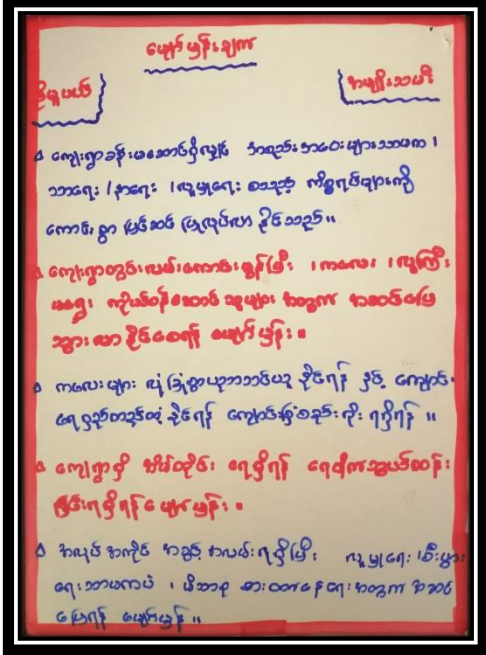 မျှော်မှန်းချက်
အမျိုးသမီး
ကျေးရွာခန်းမဆောင်ရှိလျှင် အစည်းအဝေးများသာမက ၊
သာရေး ၊ နာရေး ၊ လူမှုရေး စသည့် ကိစ္စရပ်များကို
ကောင်းစွာ ပြင်ဆင် ပြုလုပ်လာ နိုင်သည်။
ကျေးရွာတွင်းလမ်းကောင်းမွန်ပြီး ၊ ကလေး ၊ လူကြီး
မရွေး ကိုယ်ဝန်ဆောင် သူများ အတွက် အဆင်ပြေ
သွားလာ နိုင်စေရန် မျှော်မှန်း။
ကလေးများ လုံခြုံစွာပညာသင်ယူ နိုင်ရန် နှင့် ကျောင်း
ရေရှည်တည်တံ့ နိုင်ရန် ကျောင်းခြံစည်းရိုး ရရှိရန် ။
ကျေးရွာရှိ အိမ်တိုင်း ရေရှိရန် ရေပိုက်သွယ်တန်း
ခြင်းရရှိရန် မျှော်မှန်း ။
အလုပ်အကိုင် အခွင့်အလမ်းရရှိပြီး လူမှုရေး ၊ စီးပွား
ရေးသာမကပဲ ၊ မိသာစု စားဝတ်နေရေး အတွက် အဆင်
ပြေရန် မျှော်မှန်း ။